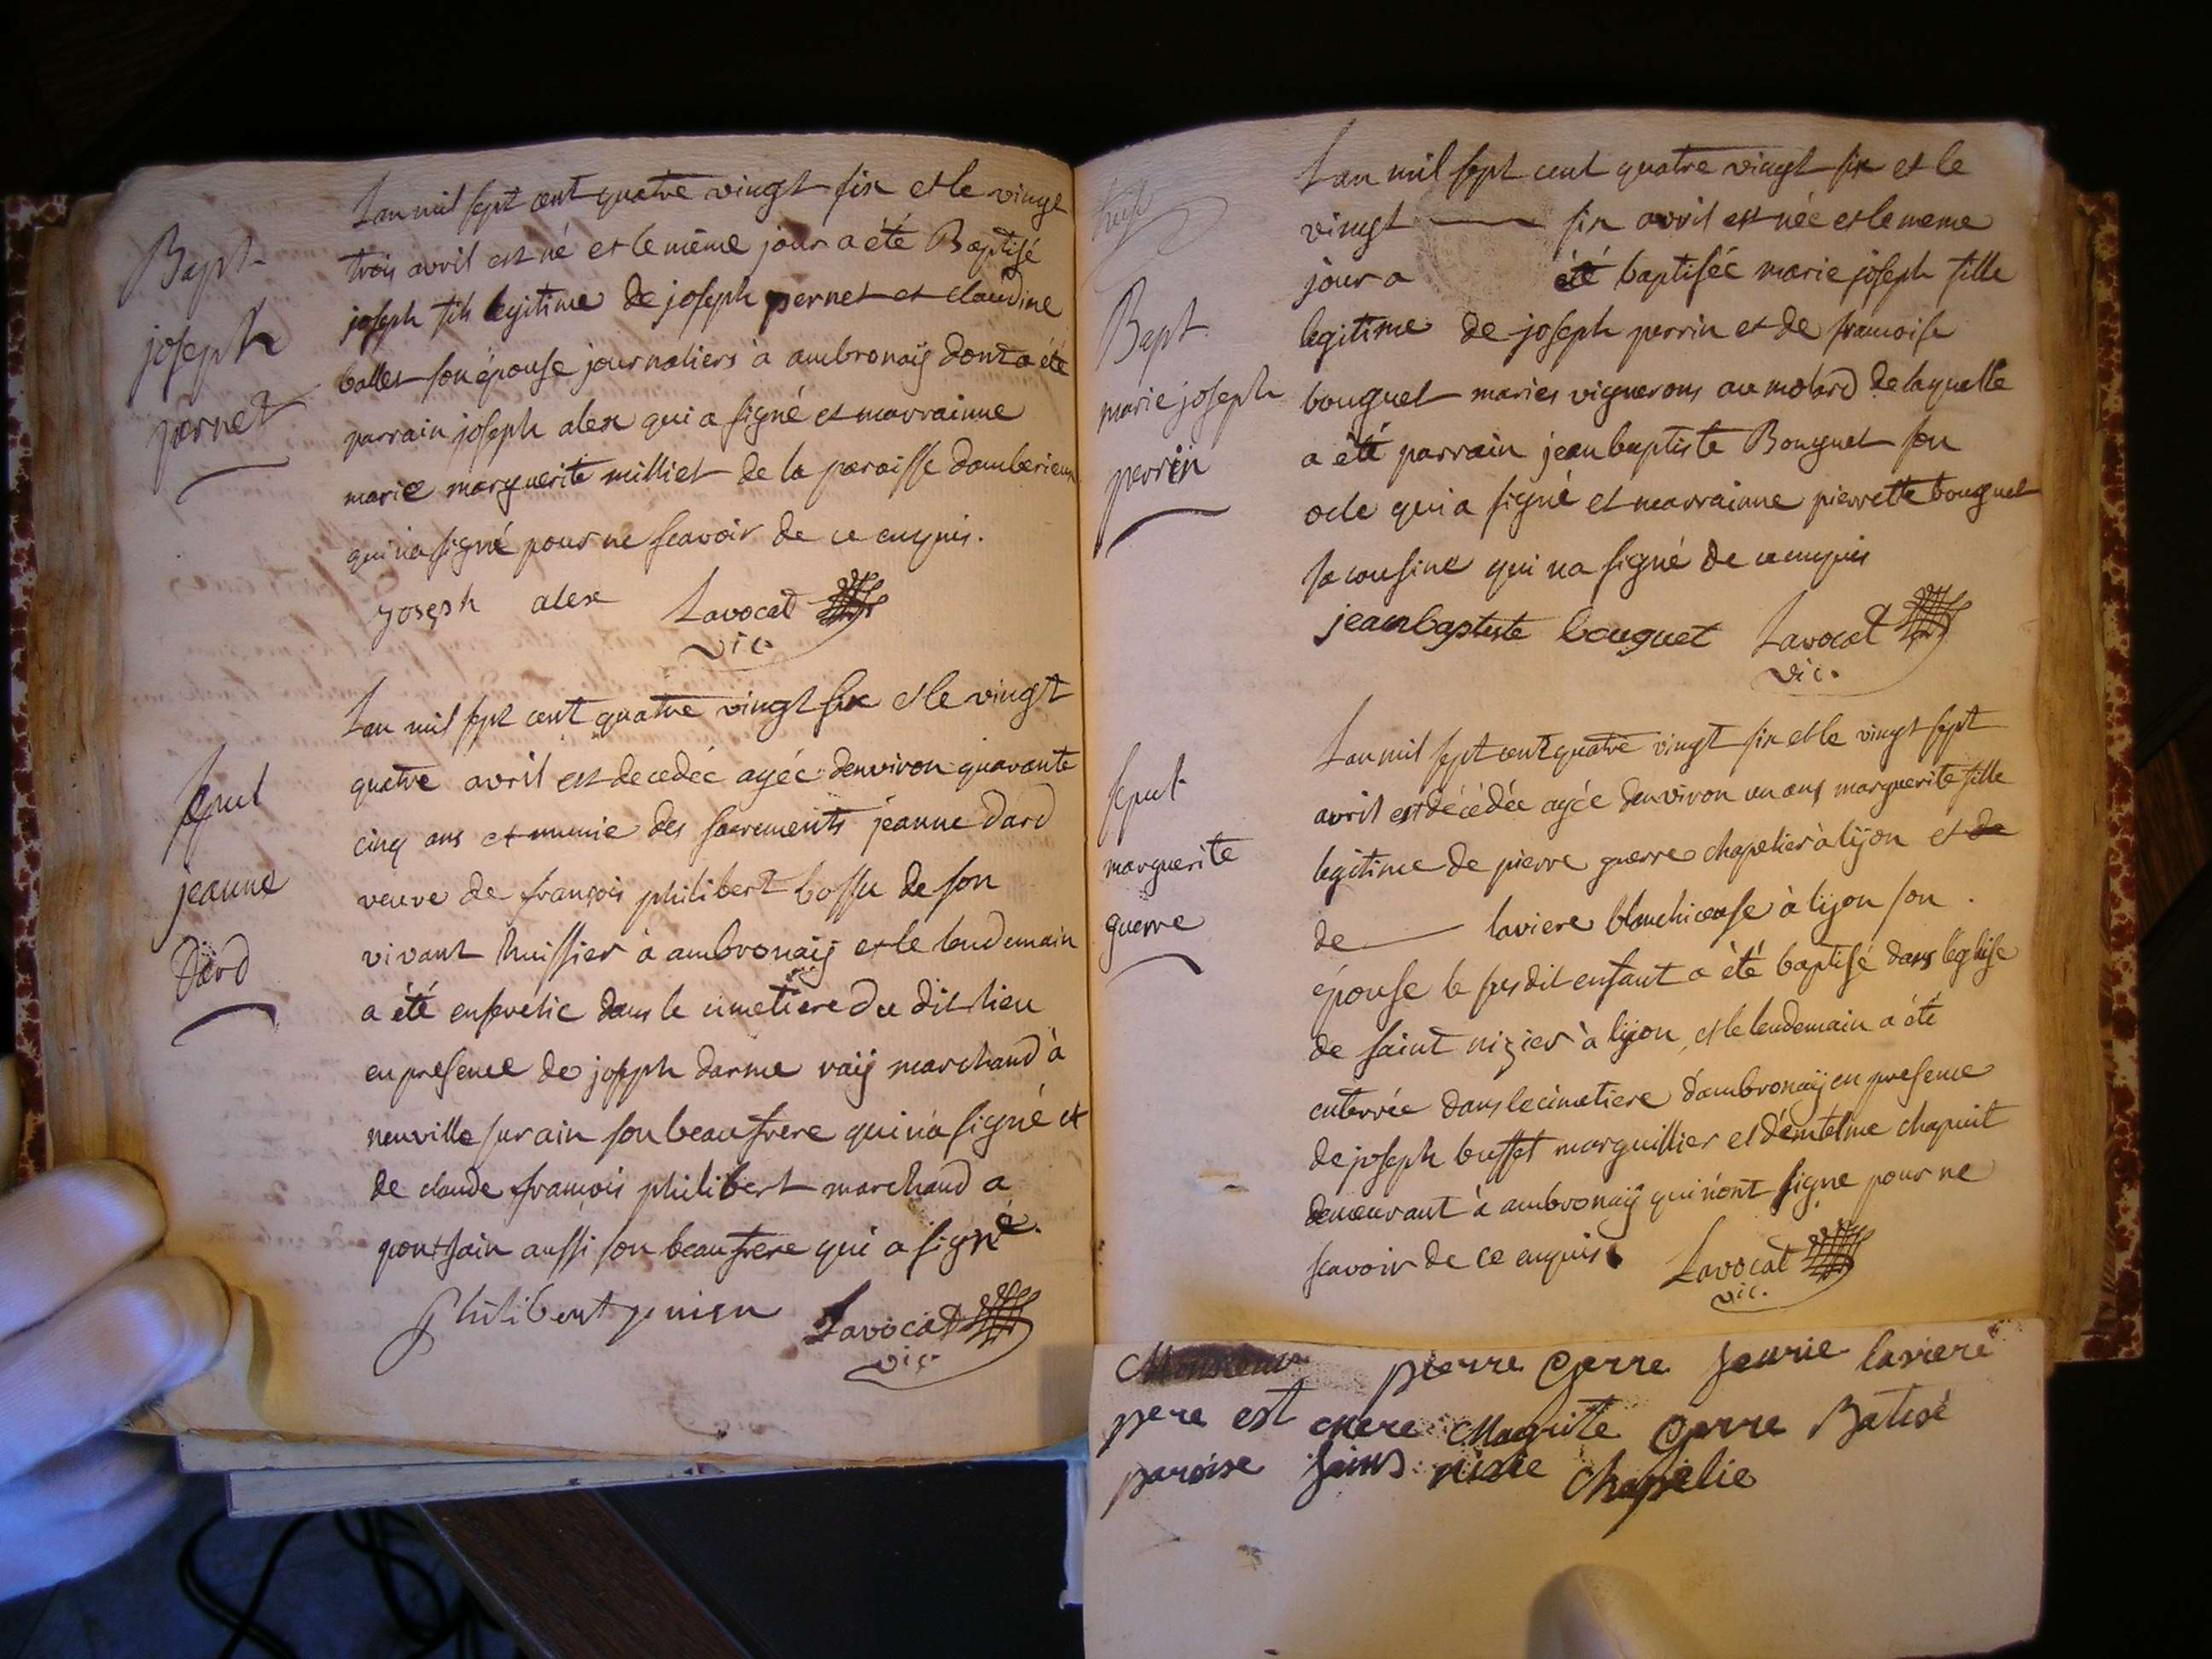 Bapt
joseph
pernet
Lan mil sept cent quatre vingt six et le vingt
trois avril est né et le même jour a été Baptisé
joseph fils legitime de joseph pernet et claudine
ballet son épouse journaliers à ambronaÿ dont a été
parrain joseph alex qui a signé et marrainne
marie marguerite milliet de la paroisse dambérieux
qui na signé pour ne scavoir de ce enquis.
joseph alex Lavocat
vic.
sepul
jeanne
Dard
Lan mil sept cent quatre vingt six et le vingt
quatre avril est decedée agée denviron quarante
cinq ans et munie des sacrements jeanne dard
veuve de françois philibert bossu de son
vivant huissier à ambronaÿ et le lendemain
a été ensevelie dans le cimetiere du dit lieu
en presence de joseph darme vaÿ marchand à
neuville sur ain son beaufrere qui na signé et
de claude françois philibert marchand a
pont dain aussi son beaufrere qui a signé.
philibert Lavocat
vic.
Bapt
marie joseph
perrin
Lan mil sept cent quatre vingt six et le
vingt six avril est née et le meme
jour a été baptisée marie joseph fille
legitime de joseph perrin et de francoise
bouguet mariés vignerons au molard de laquelle
a été parrain jean baptiste Bouguet son
ocle qui a signé et marrainne pierrette bouguet
sa cousine qui na signé de ce enquis
jeanbaptiste bouguet Lavocat
vic.
sepul
marguerite
guerre
Lan mil sept cent quatre vingt six et le vingt sept
avril est décédée agée denviron un ans marguerite fille
legitime de pierre guerre chapelier à lÿon et de
de laviere blanchiceuse à lÿon son
épouse le susdit enfant a été baptisé dans léglise
de saint nizier à lÿon, et le lendemain a été
enterrée dans le cimetiere d'ambronaÿ en presence
de joseph buffet marguillier et d'entelme chapuit
demeurant à ambronaÿ qui n'ont signe pour ne
scavoir de ce enquis Lavocat
vic.
Monsieur pierre Gerre laviere
pere est mere Magrite Gerre Batisé
paroise sains nisie Chapelie